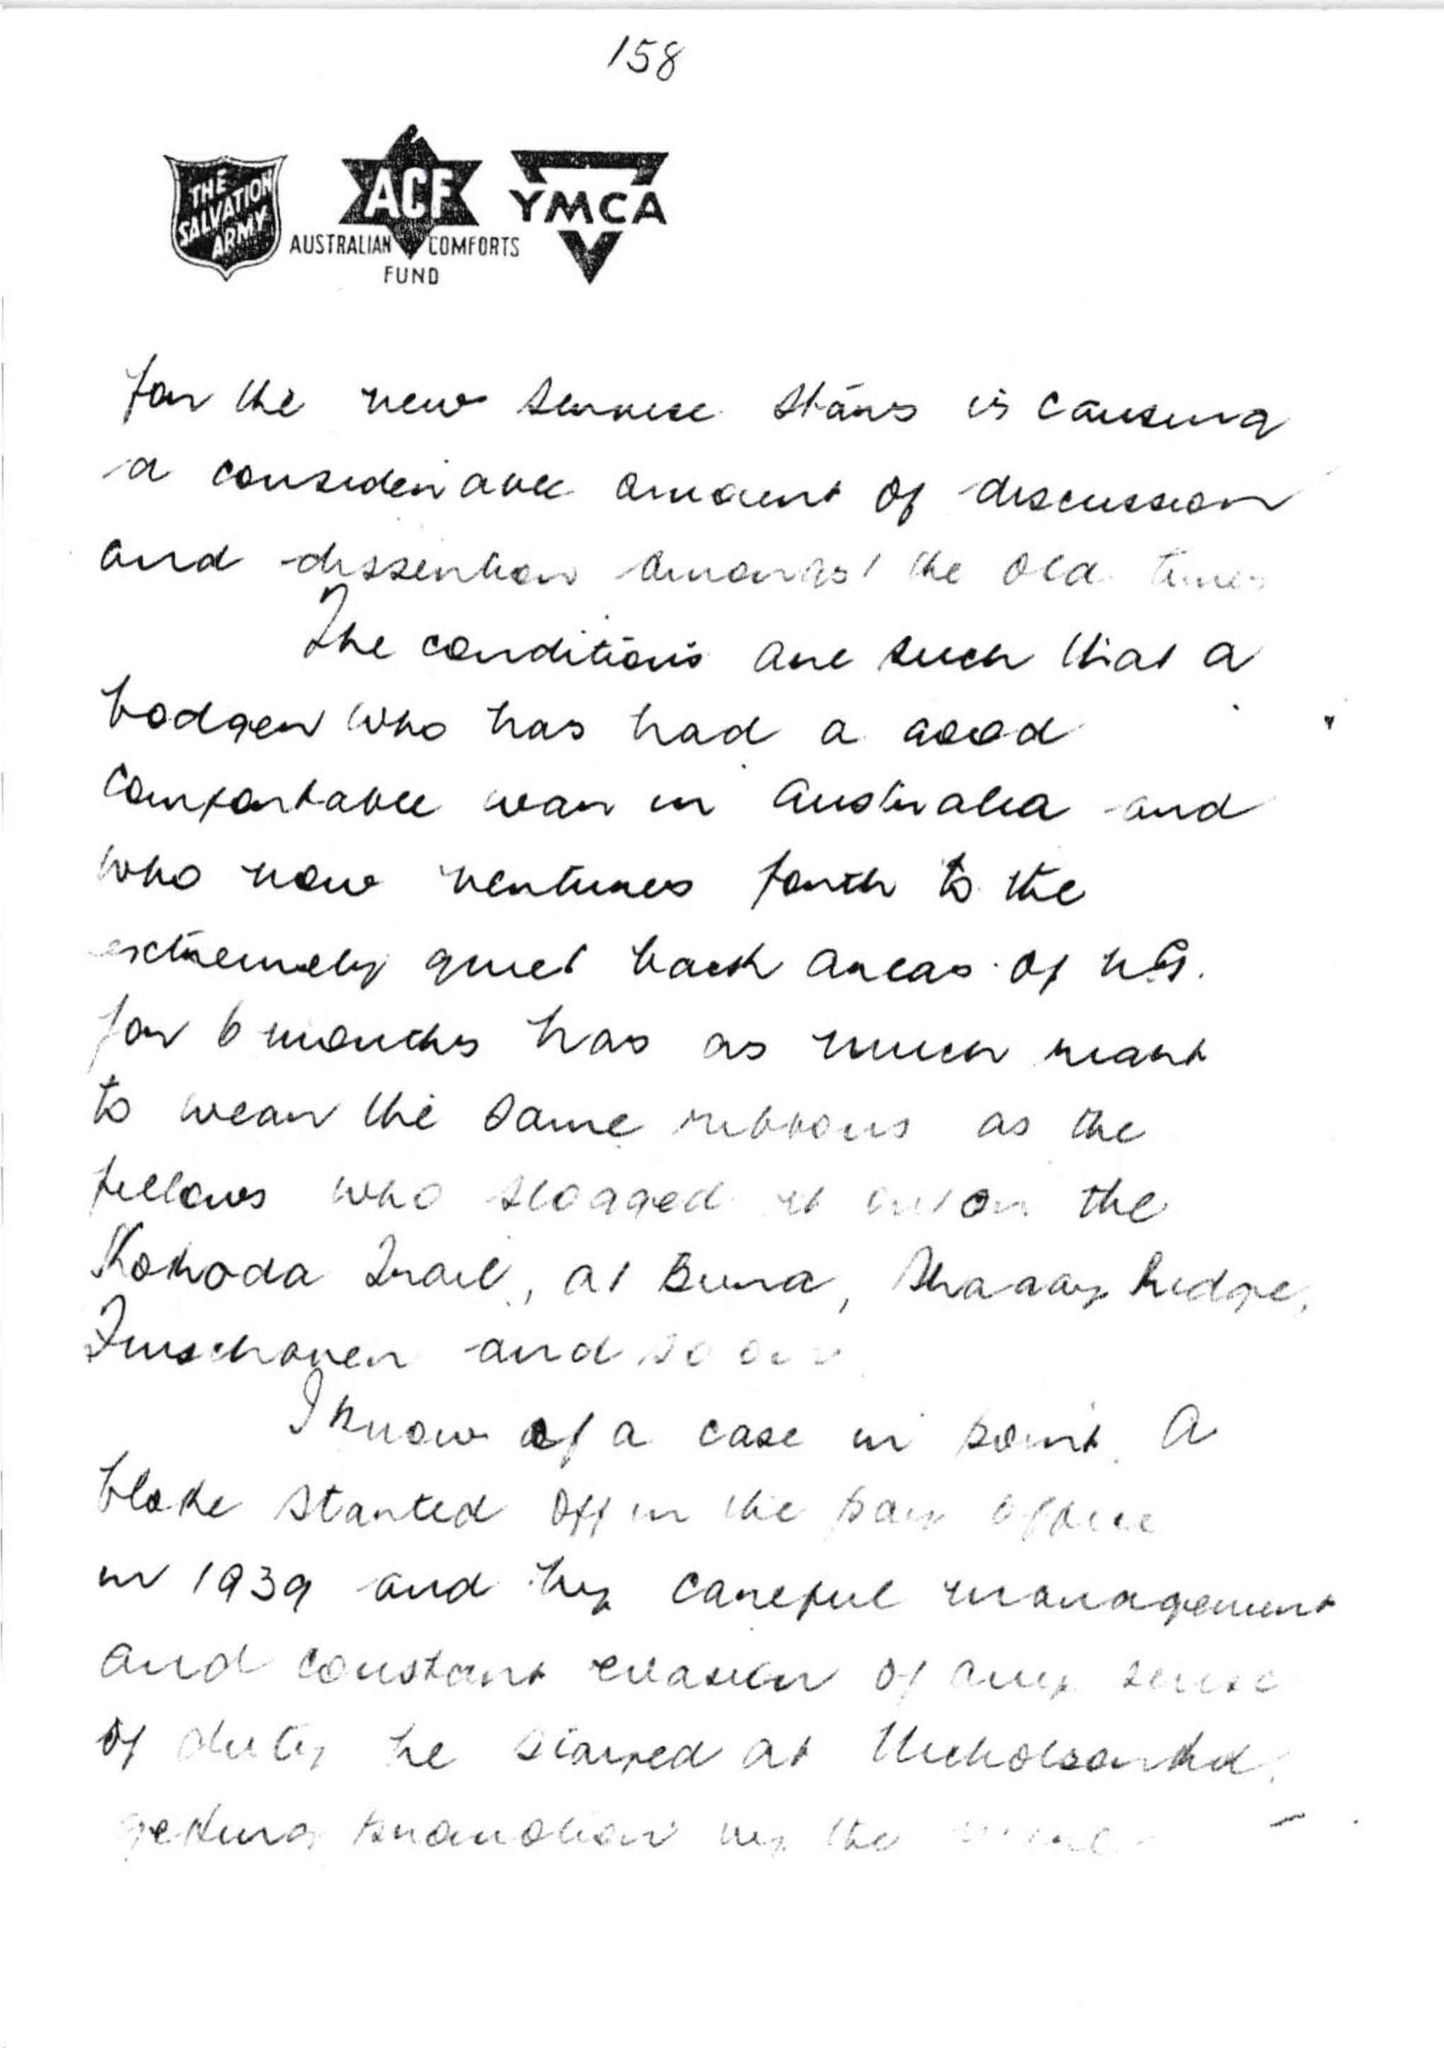 158
THE SALVATION ARMY
ACF
AUSTRALIAN COMFORTS FUND
YMCA
for the new service stars is causing
a considerable amount of discussion
and dissention amongst the old
The conditions are such that a
bodger who has had a good
comfortable war in Australia and
who now ventures forth to the
extremely quiet back areas of N.G.
for 6 months has as much right
to wear the same ribbons as the
fellows who slogged it out on the
Kokoda Trail, at Buna, Shaggy Ridge,
Finschaven and so on
I know of a case in point. A
bloke started off in the pay office
in 1939 and by careful management
and constant evasion of any sense
of duty he stayed at Nicholson Rd.
getting promotion by the